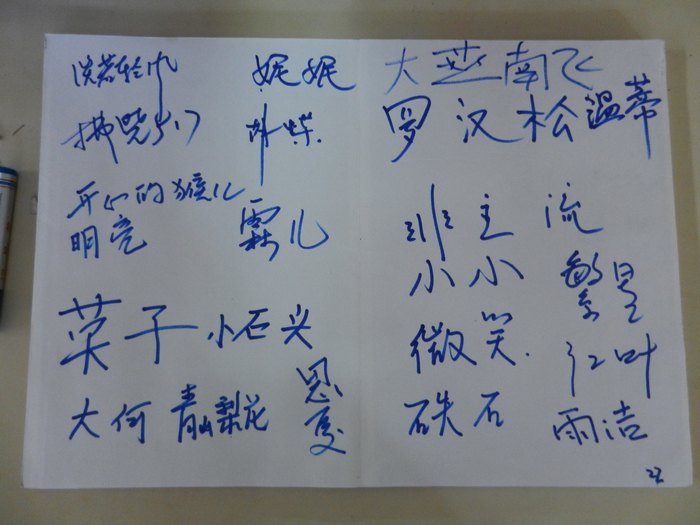 淡若轻风
妮妮
拂晓5.17
蝴蝶
开心的猴儿
明亮
霖儿
菜子
小石头
大何
青山梨花
恩爱
大燕南飞
罗汉松
温蒂
非主流
小小
繁星
微笑.
红叶
硖石
雨洁
22